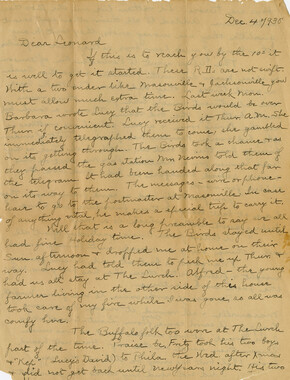 Dec 4th 1938
Dear Leonard
If this is to reach you by the 10th it
is well to get it started. These R.D.s are not swift.
With a two ender like Masonville & Jacksonville you
must allow much extra time. Last week Mon.
Barbara wrote Lucy that the Birds would be over
Thur if convenient. Lucy received it Thur A.M. She
immediately telegraphed them to come, she gambled
on its getting through. The Birds took a chance & as
they passed the gas station Wm told them of
the telegram. It had been handed along that far
on its way to them. The messages – wire or phone –
have to go to the postmaster at Masonville. In case
of anything vital he makes a special trip to carry it.
Well that is a long preamble to say we all
had fine holiday time. The Birds stayed until
Sun afternoon & dropped me at home on their
way. Lucy had told them to pick me up Thur &
had us all stay at The Lurch. Alfred – the young
farmer living in the other side of this house
took care of my fire while I was gone so all was
comfy here.
The Buffalo folk too were at The Lurch
part of the time. took his two boys
& "Rex" (Lucy's David) to Phila the Wed after Xmas
did not get back until New Years night. His two